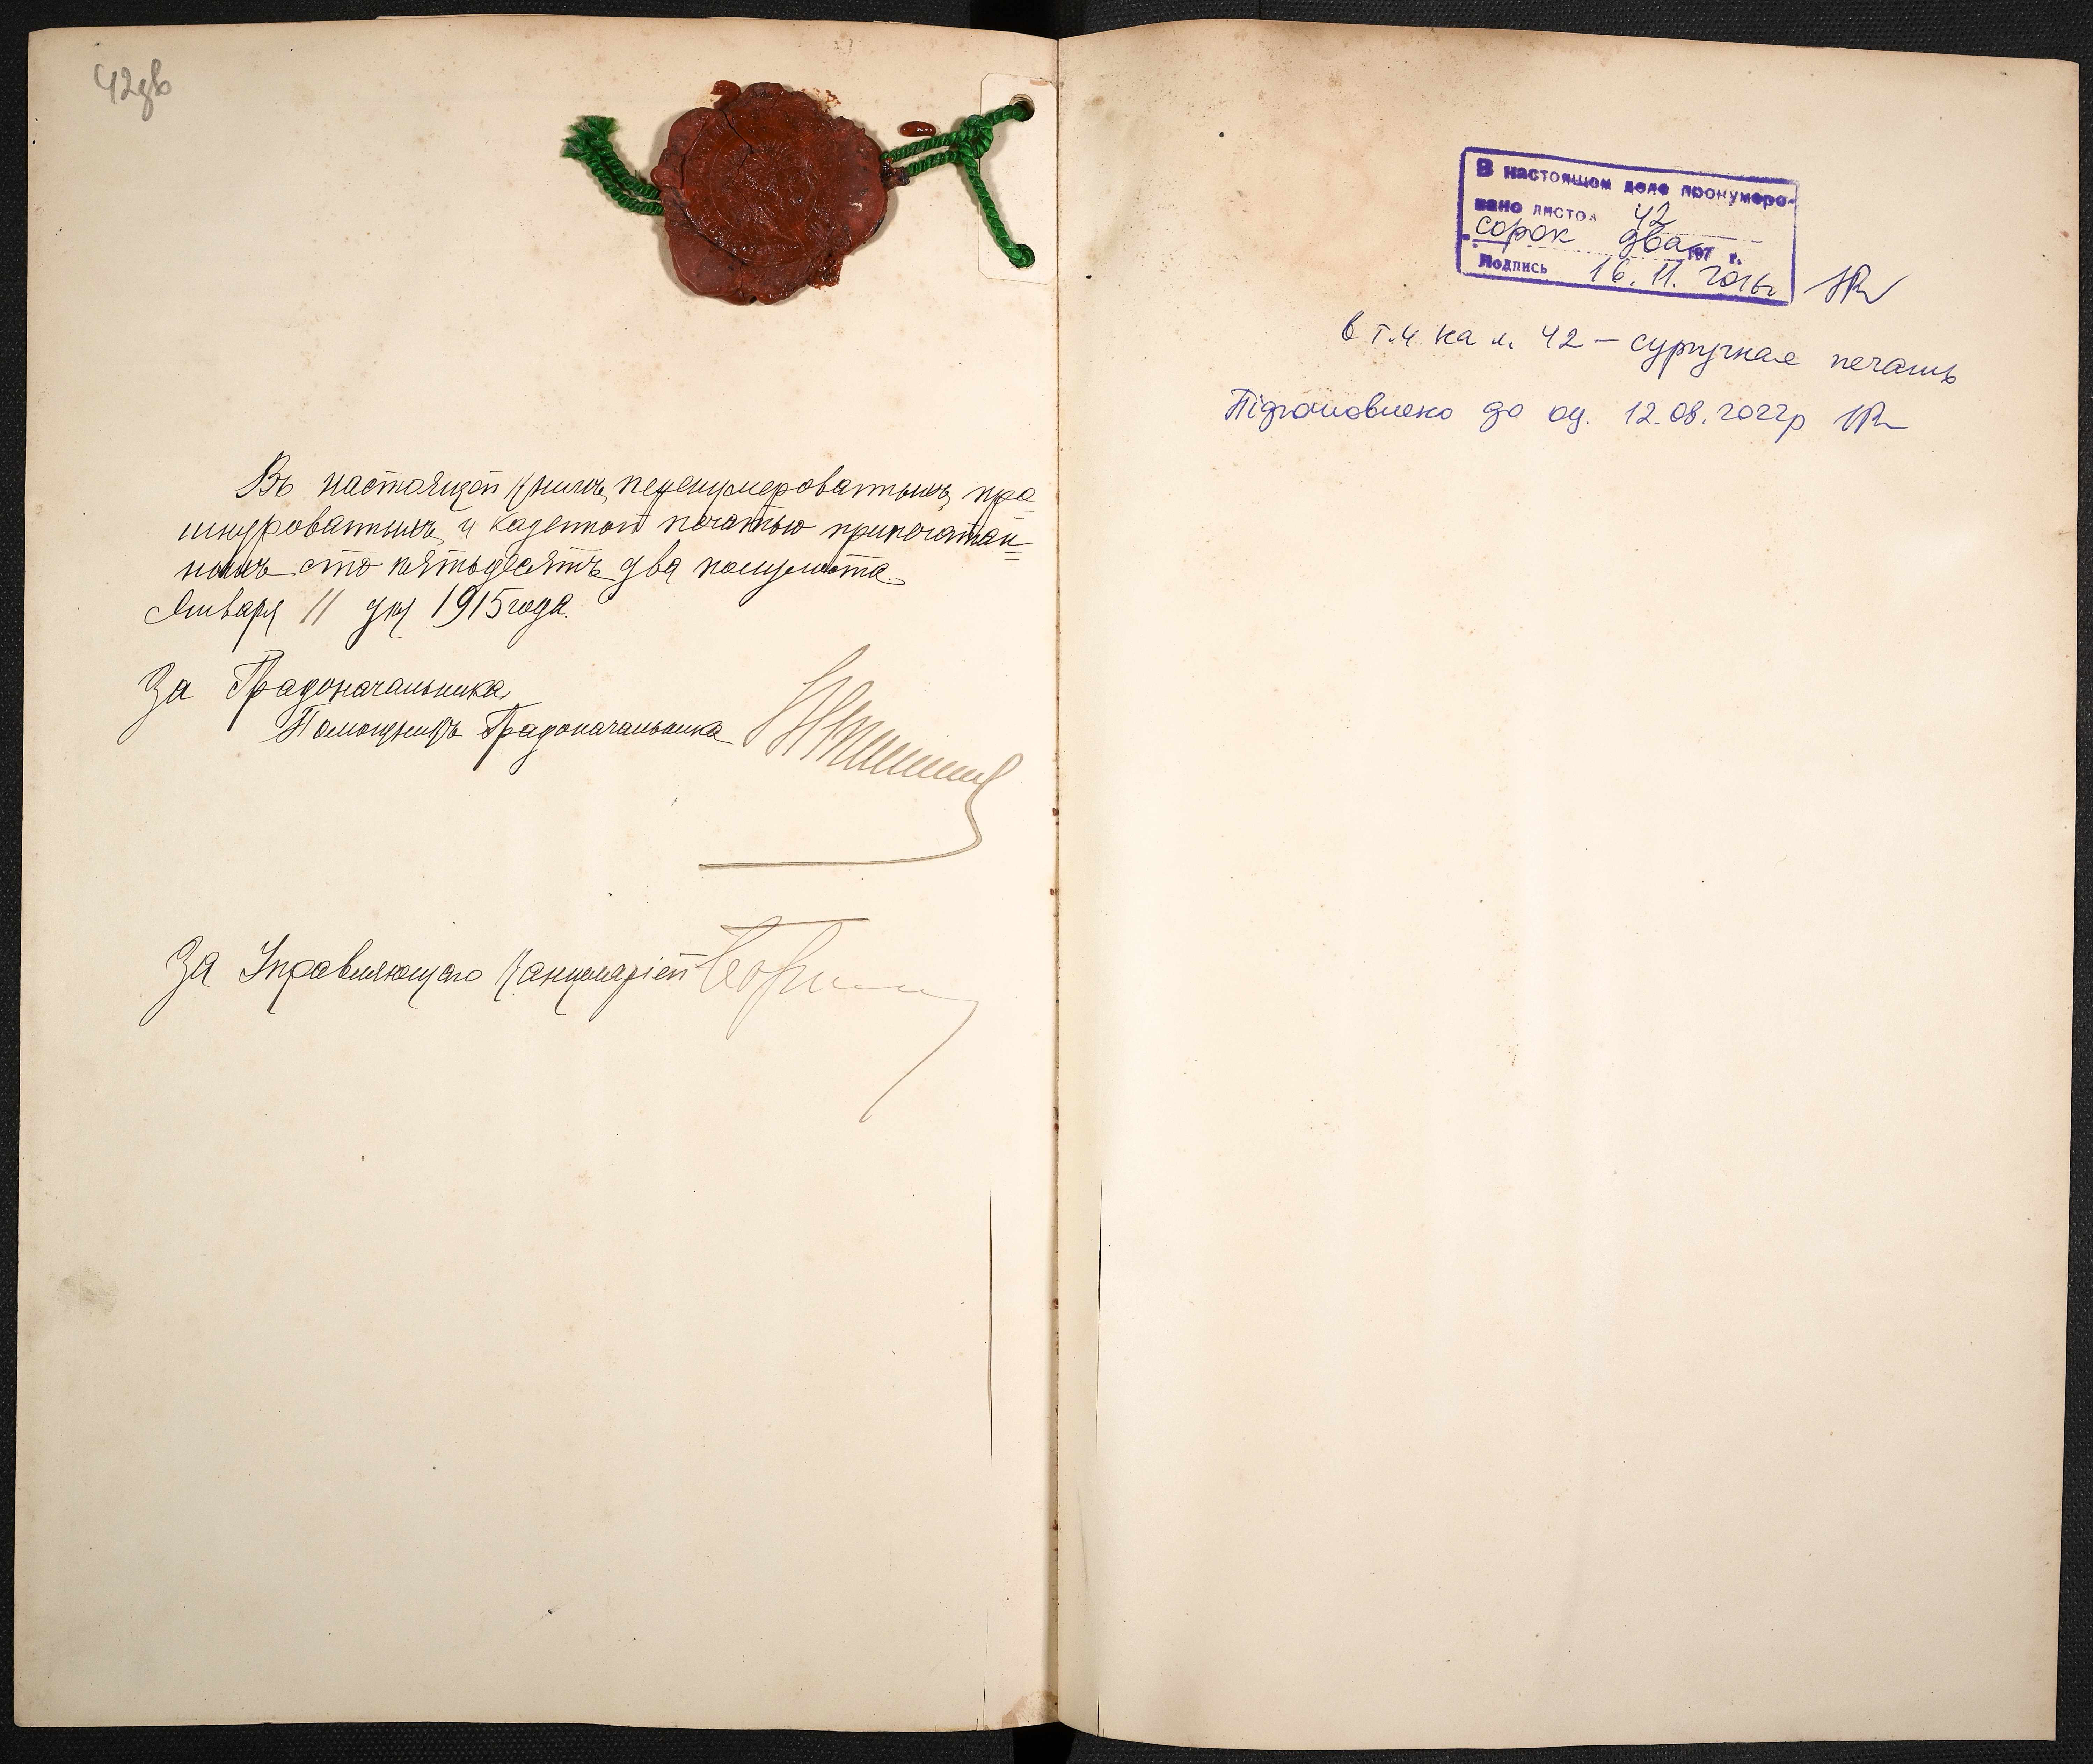 42зв
Въ настоящей книгѣ перенумерованныхъ, про=
шнурованныхъ и казенной печатью припечатан=
ныхъ сто пятьдесятъ два полулиста.
Января 11 дня 1915 года.
За Градоначальника
Помощникъ Градоначальника
За Управляющаго Канцеляріей
В настоящем деле пронумеро-
вано листов 42
сорок два
197 г.
Подпись 16.11.2016г
в т.ч. на л. 42 – сургучная печать
Підготовлено до оц. 12.08.2022р